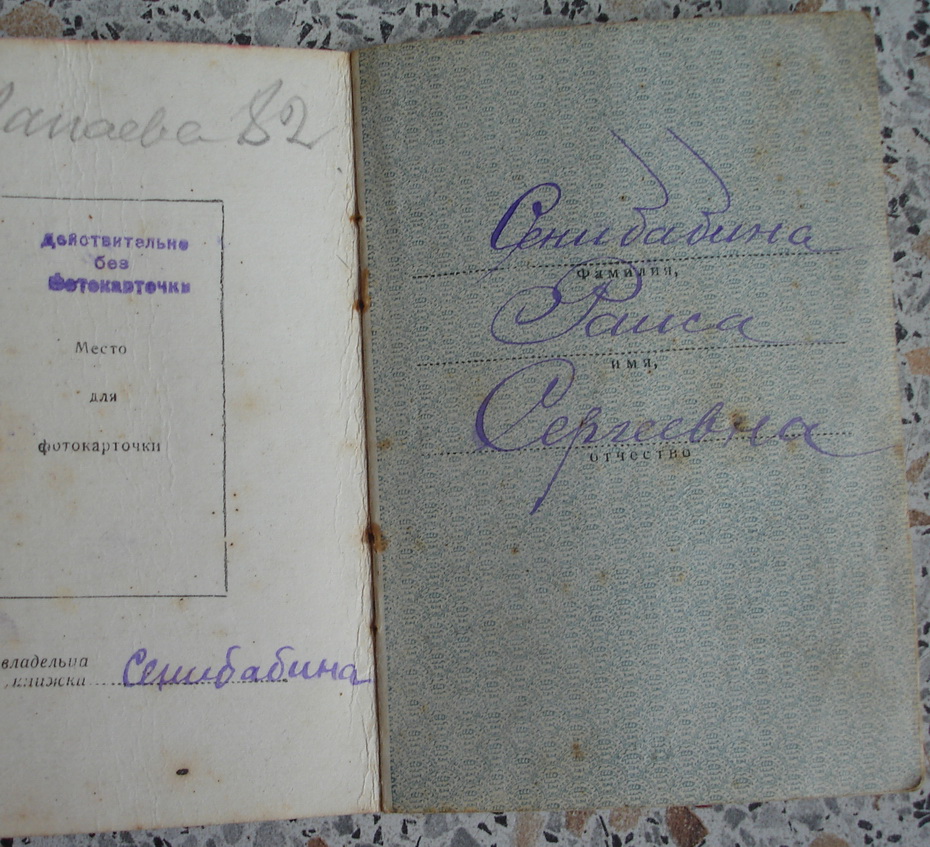 Чапаева 82
Действительно
без
Фотокарточки
Место
для
фотокарточки
владельца
книжки Сенибабина
Сенибабина
фамилия,
Раиса
имя,
Сергеевна
отчество